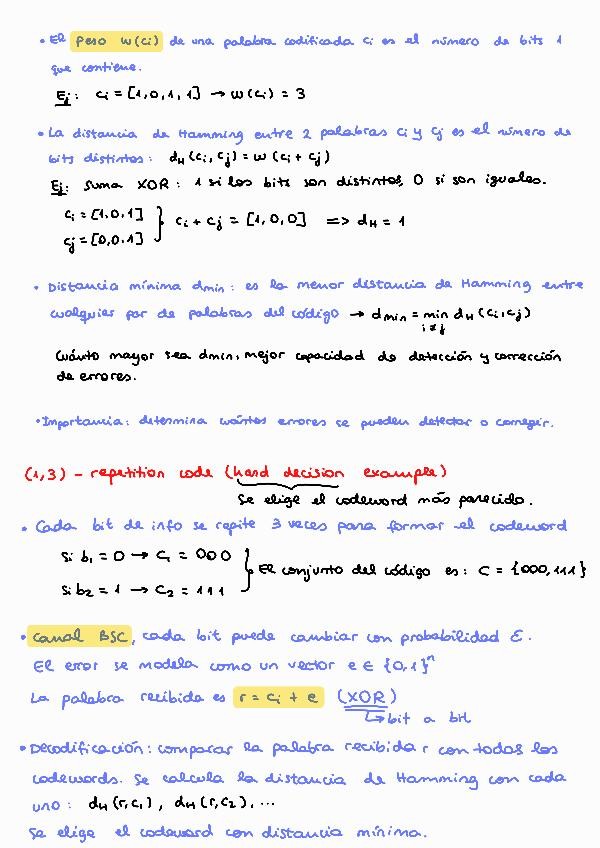 • El peso w(ci) de una palabra codificada ci es el número de bits 1
que contiene.
Ej: ci = [1,0,1,1] → w(ci) = 3
• La distancia de Hamming entre 2 palabras ci y cj es el número de
bits distintos: dH(ci,cj) = w(ci + cj)
Ej: Suma XOR: 1 si los bits son distintos, 0 si son iguales.
ci = [1,0,1]
cj = [0,0,1] } ci + cj = [1,0,0] => dH = 1
• Distancia mínima dmin: es la menor distancia de Hamming entre
cualquier par de palabras del código → dmin = min dH(ci,cj)
i ≠ j
Cuánto mayor sea dmin, mejor capacidad de detección y corrección
de errores.
• Importancia: determina cuántos errores se pueden detectar o corregir.
(1,3) - repetition code (hard decision example)
Se elige el codeword más parecido.
• Cada bit de info se repite 3 veces para formar el codeword
Si b1 = 0 → C1 = 000
Si b2 = 1 → C2 = 111 } El conjunto del código es: C = {000,111}
• Canal BSC, cada bit puede cambiar con probabilidad ε.
El error se modela como un vector e ∈ {0,1}^n
La palabra recibida es r = ci + e (XOR)
↳ bit a bit
• Decodificación: comparar la palabra recibida r con todos los
codewords. Se calcula la distancia de Hamming con cada
uno: dH(r,c1), dH(r,c2), ...
Se elige el codeword con distancia mínima.